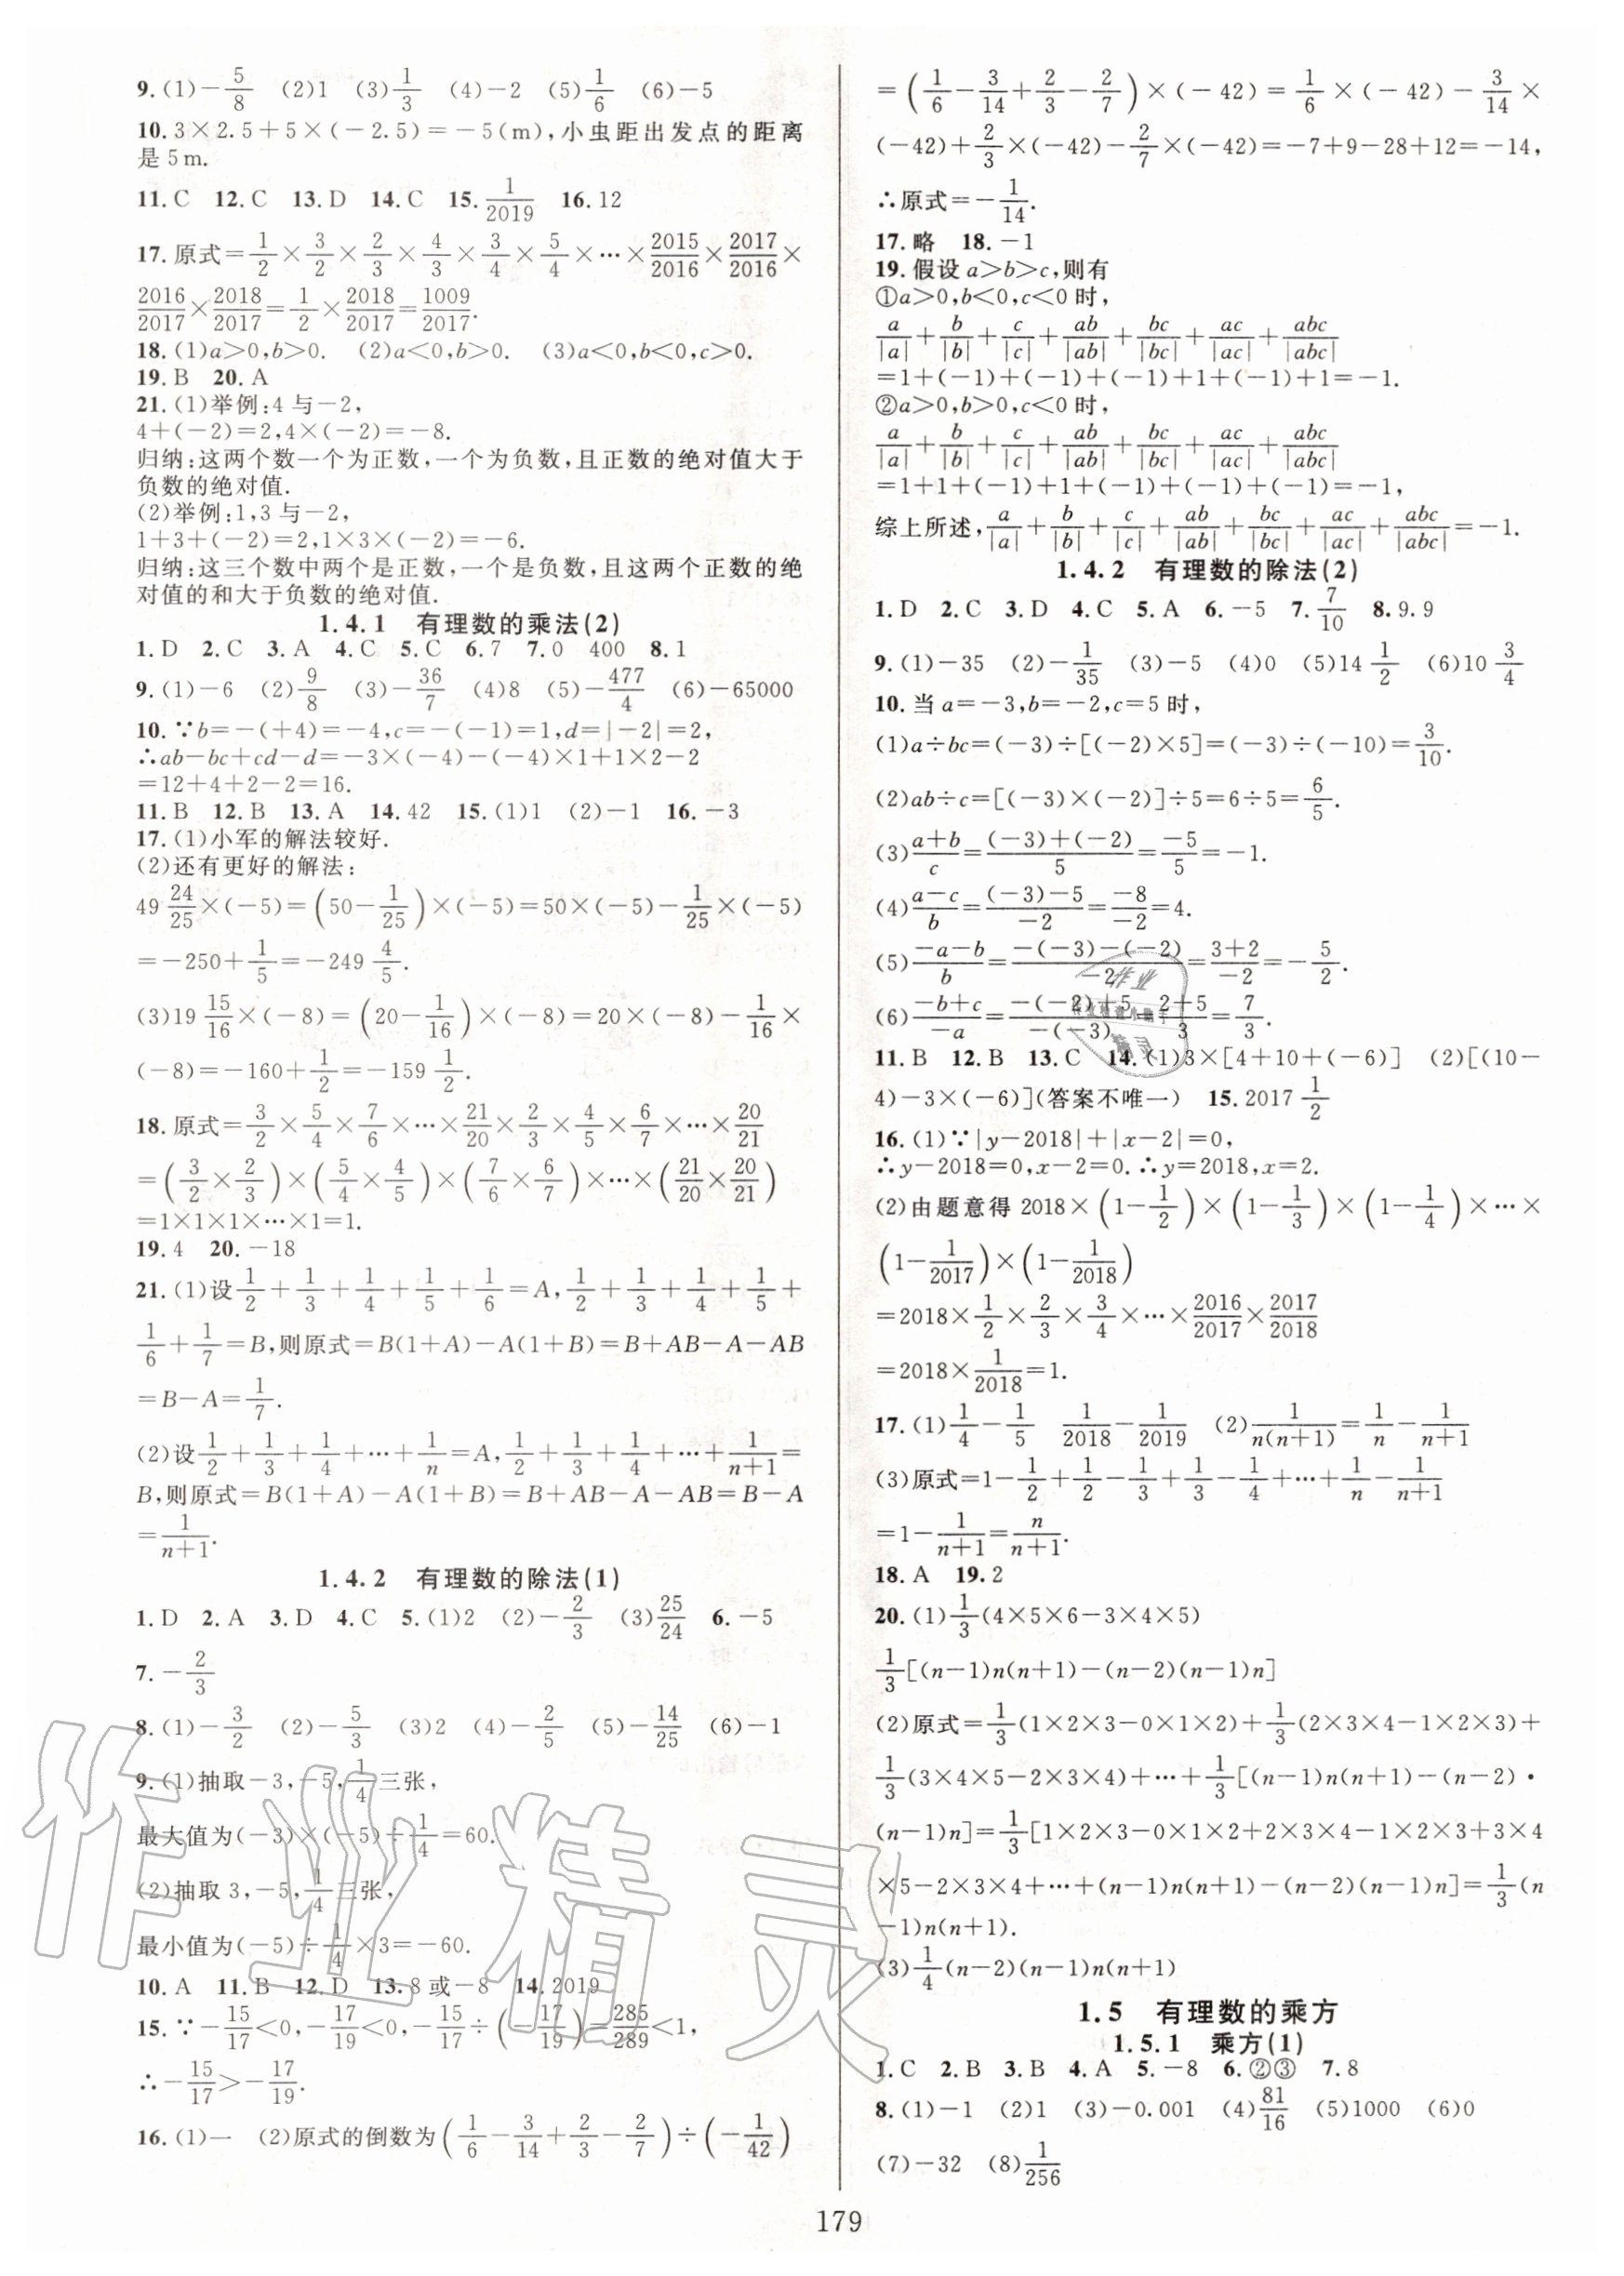 9.(1)−5/8 (2)1 (3)1/3 (4)−2 (5)1/6 (6)−5
10.3×2.5+5×(−2.5)=−5(m),小虫距出发点的距离
是5m.
11.C 12.C 13.D 14.C 15.1/2019 16.12
17.原式=1/2×3/2×2/3×4/3×3/4×5/4×…×2015/2016×2017/2016×
2016/2017×2018/2017=1/2×2018/2017=1009/2017.
18.(1)a>0,b>0. (2)a<0,b>0. (3)a<0,b<0,c>0.
19.B 20.A
21.(1)举例:4与−2,
4+(−2)=2,4×(−2)=−8.
归纳:这两个数一个为正数,一个为负数,且正数的绝对值大于
负数的绝对值.
(2)举例:1,3与−2,
1+3+(−2)=2,1×3×(−2)=−6.
归纳:这三个数中两个是正数,一个是负数,且这两个正数的绝
对值的和大于负数的绝对值.
1.4.1 有理数的乘法(2)
1.D 2.C 3.A 4.C 5.C 6.7 7.0 400 8.1
9.(1)−6 (2)9/8 (3)−36/7 (4)8 (5)−477/4 (6)−65000
10.∵b=−(+4)=−4,c=−(−1)=1,d=|−2|=2,
∴ab−bc+cd−d=−3×(−4)−(−4)×1+1×2−2
=12+4+2−2=16.
11.B 12.B 13.A 14.42 15.(1)1 (2)−1 16.−3
17.(1)小军的解法较好.
(2)还有更好的解法:
49 24/25×(−5)=(50−1/25)×(−5)=50×(−5)−1/25×(−5)
=−250+1/5=−249 4/5.
(3)19 15/16×(−8)=(20−1/16)×(−8)=20×(−8)−1/16×
(−8)=−160+1/2=−159 1/2.
18.原式=3/2×5/4×7/6×…×21/20×2/3×4/5×6/7×…×20/21
=(3/2×2/3)×(5/4×4/5)×(7/6×6/7)×…×(21/20×20/21)
=1×1×1×…×1=1.
19.4 20.−18
21.(1)设1/2+1/3+1/4+1/5+1/6=A,1/2+1/3+1/4+1/5+
1/6+1/7=B,则原式=B(1+A)−A(1+B)=B+AB−A−AB
=B−A=1/7.
(2)设1/2+1/3+1/4+…+1/n=A,1/2+1/3+1/4+…+1/(n+1)=
B,则原式=B(1+A)−A(1+B)=B+AB−A−AB=B−A
=1/(n+1).
1.4.2 有理数的除法(1)
1.D 2.A 3.D 4.C 5.(1)2 (2)−2/3 (3)25/24 6.−5
7.−2/3
8.(1)−3/2 (2)−5/3 (3)2 (4)−2/5 (5)−14/25 (6)−1
9.(1)抽取−3,−5,1/4三张,
最大值为(−3)×(−5)÷1/4=60.
(2)抽取3,−5,1/4三张,
最小值为(−5)÷1/4×3=−60.
10.A 11.B 12.D 13.8或−8 14.2019
15.∵−15/17<0,−17/19<0,−15/17÷(−17/19)=285/289<1,
∴−15/17>−17/19.
16.(1)一 (2)原式的倒数为(1/6−3/14+2/3−2/7)÷(−1/42)
=(1/6−3/14+2/3−2/7)×(−42)=1/6×(−42)−3/14×
(−42)+2/3×(−42)−2/7×(−42)=−7+9−28+12=−14,
∴原式=−1/14.
17.略 18.−1
19.假设a>b>c,则有
①a>0,b<0,c<0时,
a/|a|+b/|b|+c/|c|+ab/|ab|+bc/|bc|+ac/|ac|+abc/|abc|
=1+(−1)+(−1)+(−1)+1+(−1)+1=−1.
②a>0,b>0,c<0时,
a/|a|+b/|b|+c/|c|+ab/|ab|+bc/|bc|+ac/|ac|+abc/|abc|
=1+1+(−1)+1+(−1)+(−1)+(−1)=−1,
综上所述,a/|a|+b/|b|+c/|c|+ab/|ab|+bc/|bc|+ac/|ac|+abc/|abc|=−1.
1.4.2 有理数的除法(2)
1.D 2.C 3.D 4.C 5.A 6.−5 7.7/10 8.9.9
9.(1)−35 (2)−1/35 (3)−5 (4)0 (5)14 1/2 (6)10 3/4
10.当a=−3,b=−2,c=5时,
(1)a÷bc=(−3)÷[(−2)×5]=(−3)÷(−10)=3/10.
(2)ab÷c=[(−3)×(−2)]÷5=6÷5=6/5.
(3)(a+b)/c=((−3)+(−2))/5=−5/5=−1.
(4)(a−c)/b=((−3)−5)/−2=−8/−2=4.
(5)(−a−b)/b=(−(−3)−(−2))/−2=(3+2)/−2=−5/2.
(6)(−b+c)/−a=(−(−2)+5)/−(−3)=(2+5)/3=7/3.
11.B 12.B 13.C 14.(1)3×[4+10+(−6)] (2)[(10−
4)−3×(−6)](答案不唯一) 15.2017 1/2
16.(1)∵|y−2018|+|x−2|=0,
∴y−2018=0,x−2=0.∴y=2018,x=2.
(2)由题意得2018×(1−1/2)×(1−1/3)×(1−1/4)×…×
(1−1/2017)×(1−1/2018)
=2018×1/2×2/3×3/4×…×2016/2017×2017/2018
=2018×1/2018=1.
17.(1)1/4−1/5 1/2018−1/2019 (2)1/n(n+1)=1/n−1/(n+1)
(3)原式=1−1/2+1/2−1/3+1/3−1/4+…+1/n−1/(n+1)
=1−1/(n+1)=n/(n+1).
18.A 19.2
20.(1)1/3(4×5×6−3×4×5)
1/3[(n−1)n(n+1)−(n−2)(n−1)n]
(2)原式=1/3(1×2×3−0×1×2)+1/3(2×3×4−1×2×3)+
1/3(3×4×5−2×3×4)+…+1/3[(n−1)n(n+1)−(n−2)·
(n−1)n]=1/3[1×2×3−0×1×2+2×3×4−1×2×3+3×4
×5−2×3×4+…+(n−1)n(n+1)−(n−2)(n−1)n]=1/3(n
−1)n(n+1).
(3)1/4(n−2)(n−1)n(n+1)
1.5 有理数的乘方
1.5.1 乘方(1)
1.C 2.B 3.B 4.A 5.−8 6.②③ 7.8
8.(1)−1 (2)1 (3)−0.001 (4)81/16 (5)1000 (6)0
(7)−32 (8)1/256
179
作业精灵